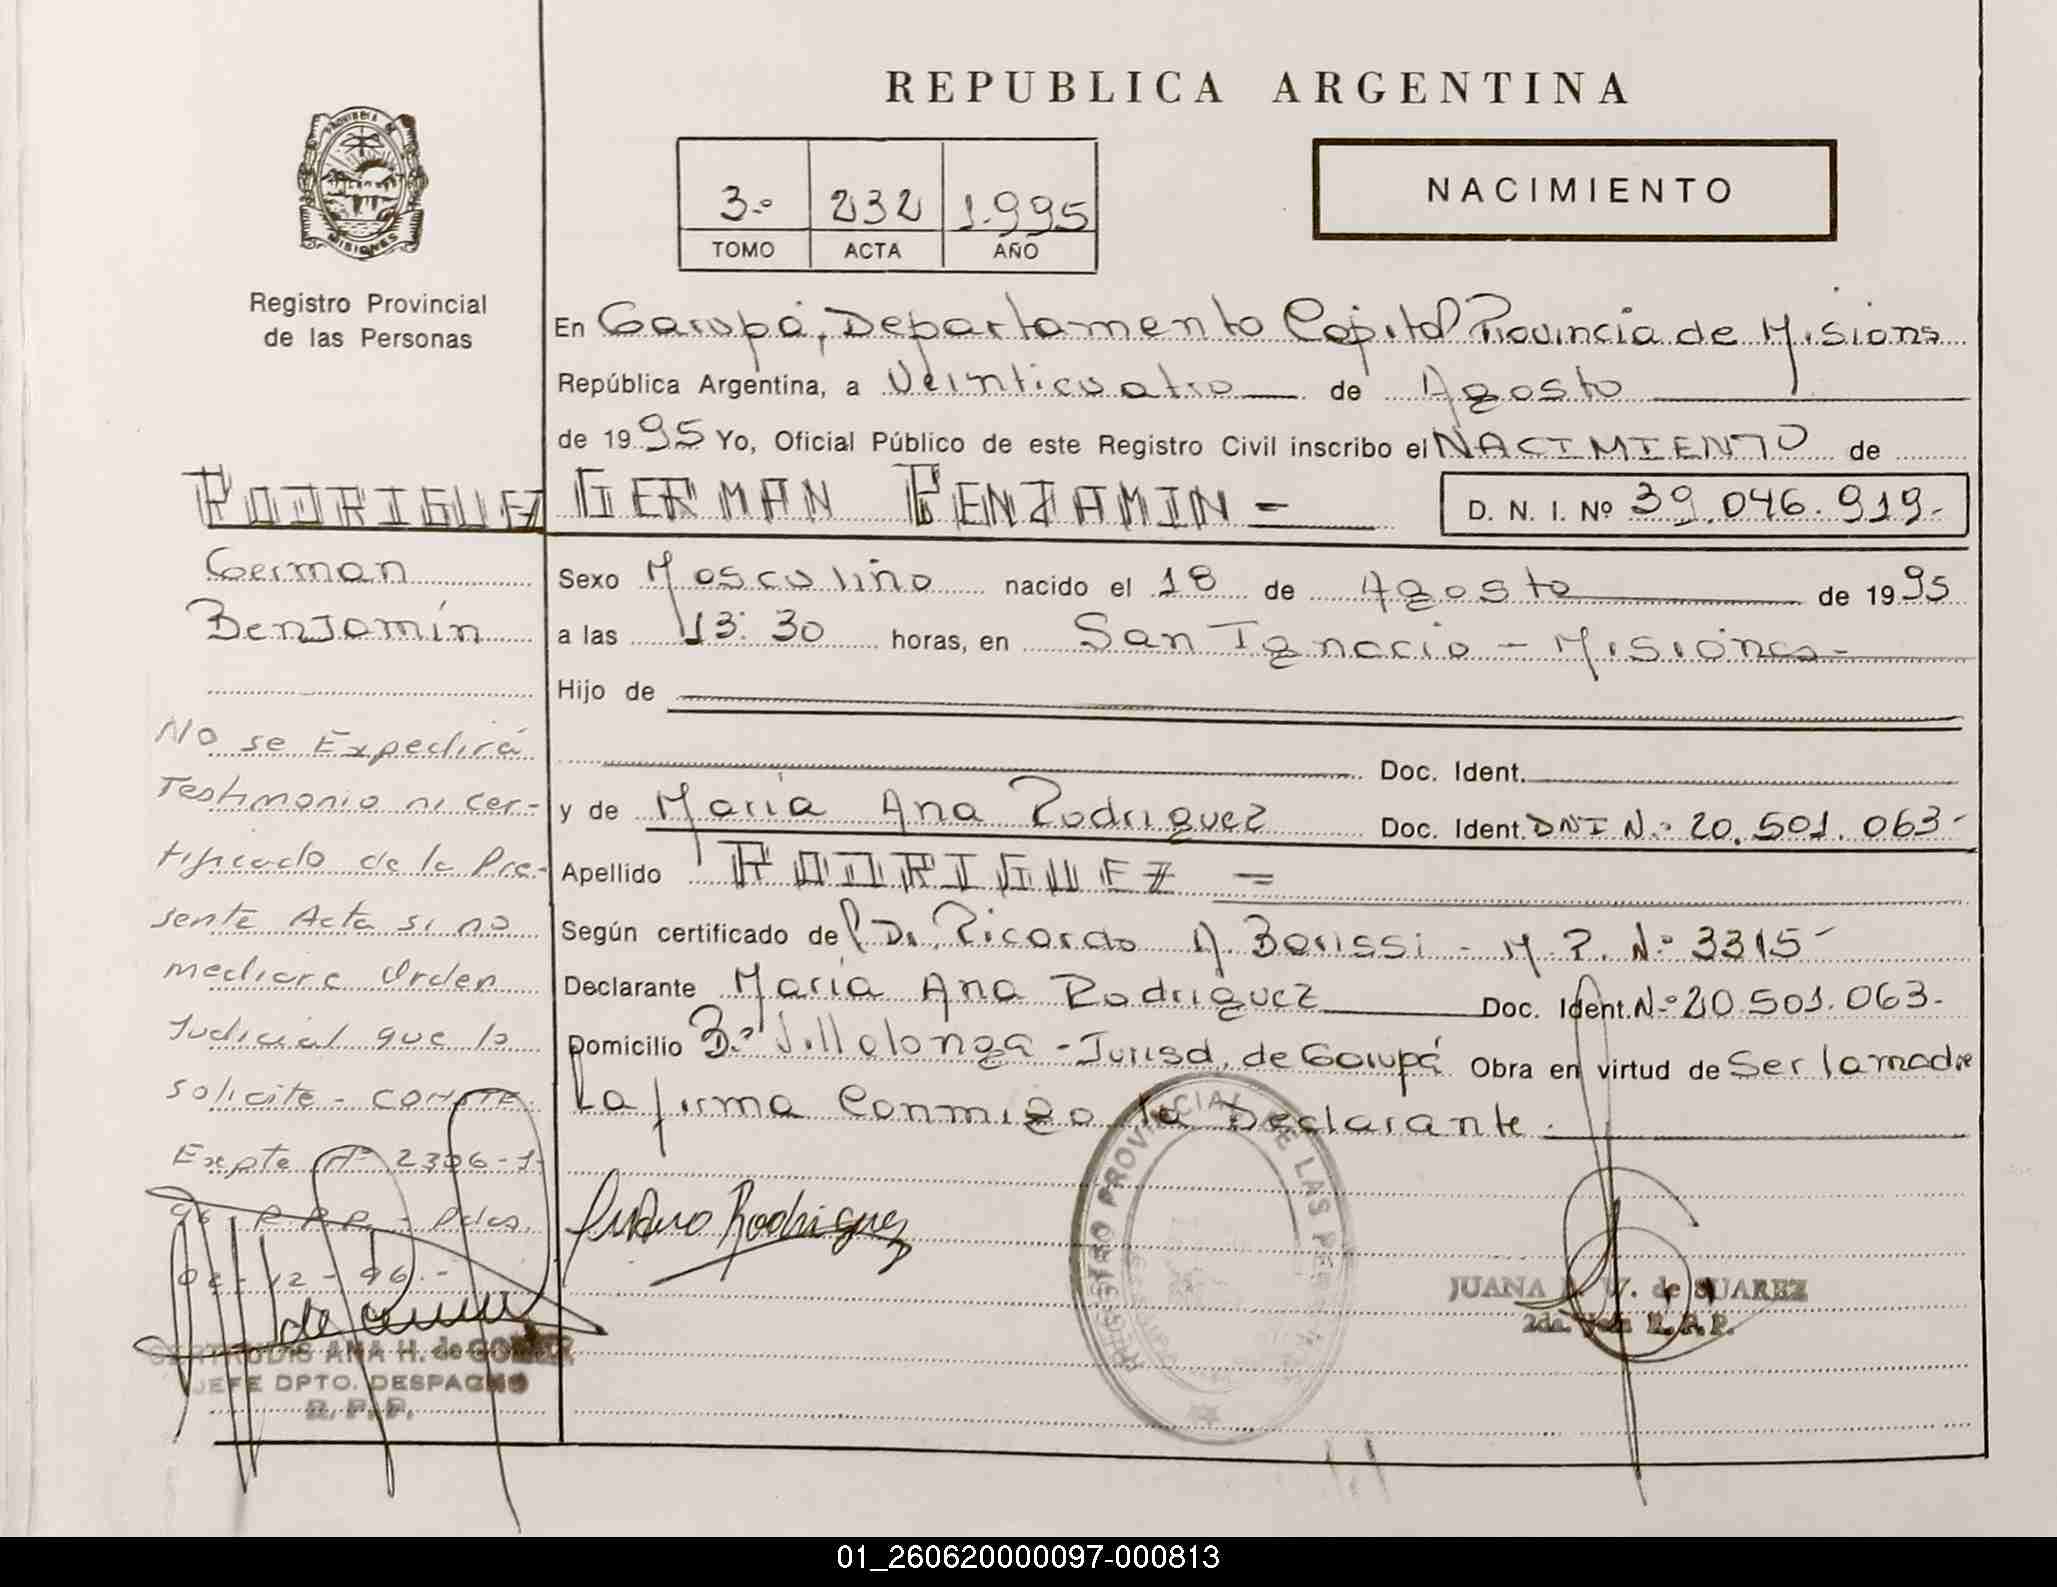 REPUBLICA ARGENTINA
NACIMIENTO
3.º 232 1.995
TOMO ACTA AÑO
PROVINCIA DE
MISIONES
Registro Provincial
de las Personas
En Garupá, Departamento Capital Provincia de Misions
República Argentina, a Veinticuatro de Agosto
de 1995 Yo, Oficial Público de este Registro Civil inscribo el NACIMIENTO de
RODRIGUEZ GERMAN BENJAMIN = D. N. I. Nº 39.046.919.-
German
Benjamín
Sexo Masculino nacido el 18 de Agosto de 1995
a las 13:30 horas, en San Ignacio - Misiones -
Hijo de
Doc. Ident.
y de María Ana Rodriguez Doc. Ident. DNI N.º 20.501.063-
Apellido RODRIGUEZ =
Según certificado de Dr. Ricardo A. - M.P. N.º 3315-
Declarante María Ana Rodriguez Doc. Ident. N.º 20.501.063.-
Domicilio B.º Villalonga - Jurisd. de Garupá Obra en virtud de Ser la madre
La firma Conmigo la Declarante.
No se Expedirá
Testimonio ni cer-
tificado de la Pre-
sente Acta si no
mediare Orden
Judicial que lo
solicite - CONSTE.
Expte Nº 2306-1-
96 R.P.P. - Pdas.
-12-96.-
GERTRUDIS ANA H. de GOMEZ
JEFE DPTO. DESPACHO
R. P. P.
Rodriguez
REGISTRO PROVINCIAL DE LAS PERSONAS
JUANA W. de SUAREZ
2da. R. P. P.
01_260620000097-000813